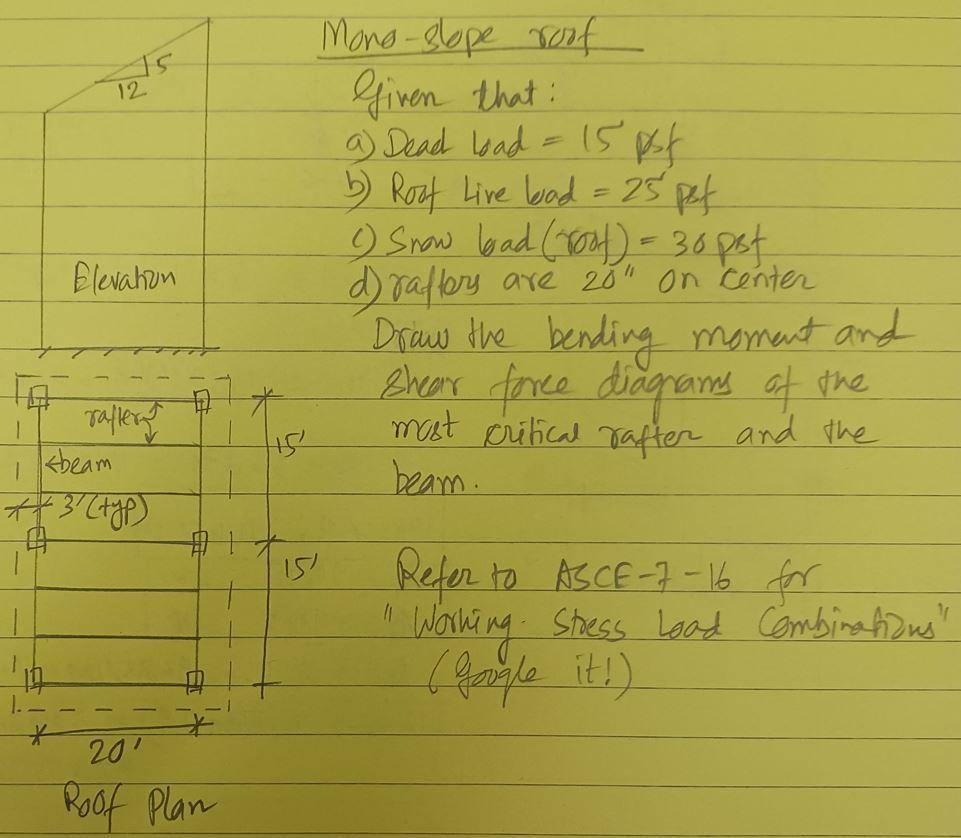 Mono-slope roof
Given that:
a) Dead load = 15 psf
b) Roof Live load = 25 psf
c) Snow load (roof) = 30 psf
d) rafters are 20" on center
Draw the bending moment and
shear force diagrams of the
most critical rafter and the
beam.
Refer to ASCE-7-16 for
"Working Stress Load Combinations"
(Google it!)
5
12
Elevation
rafters
15'
beam
3' (typ)
15'
20'
Roof Plan